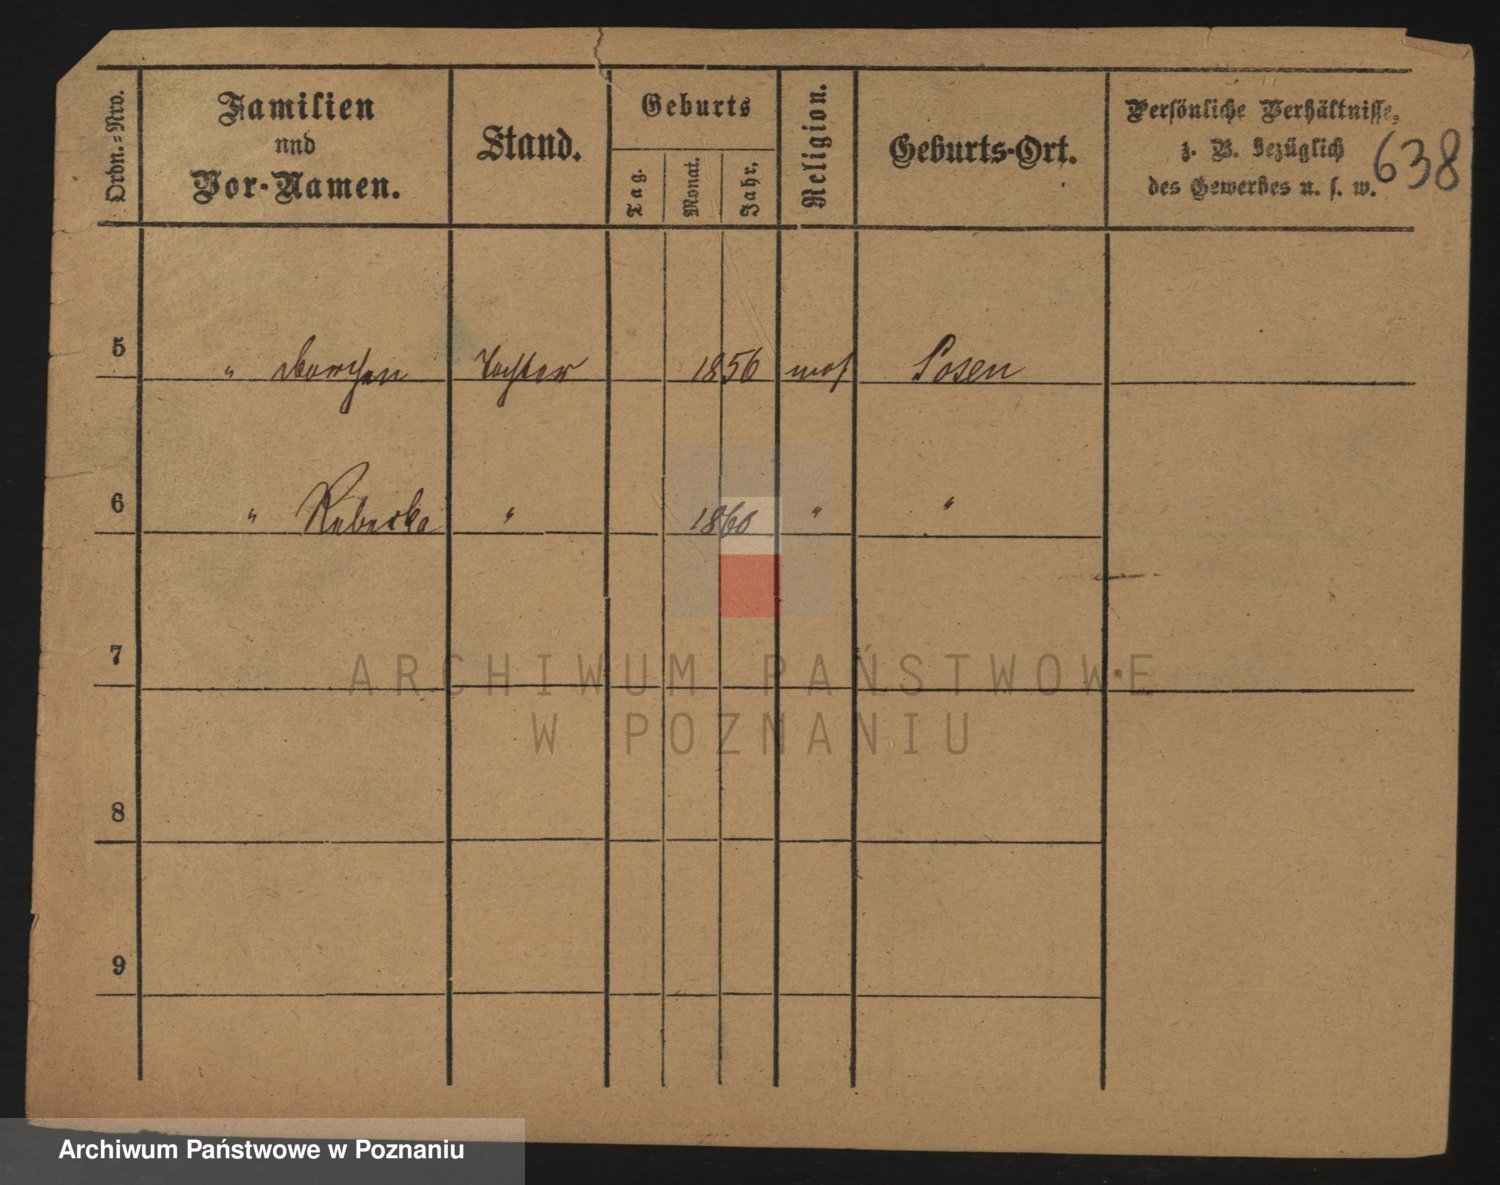 Ordn.=Nro.
Familien
und
Vor-Namen.
Stand.
Geburts
Tag.
Monat.
Jahr,
Religion.
Geburts-Ort.
Persönliche Verhältnisse,
z. B. bezüglich
des Gewerbes u. s. w.
638
5 " Dorchen Tochter 1856 mos Posen
6 " Rebecka " 1860 " "
7
ARCHIWUM PAŃSTWOWE
W POZNANIU
8
9
Archiwum Państwowe w Poznaniu